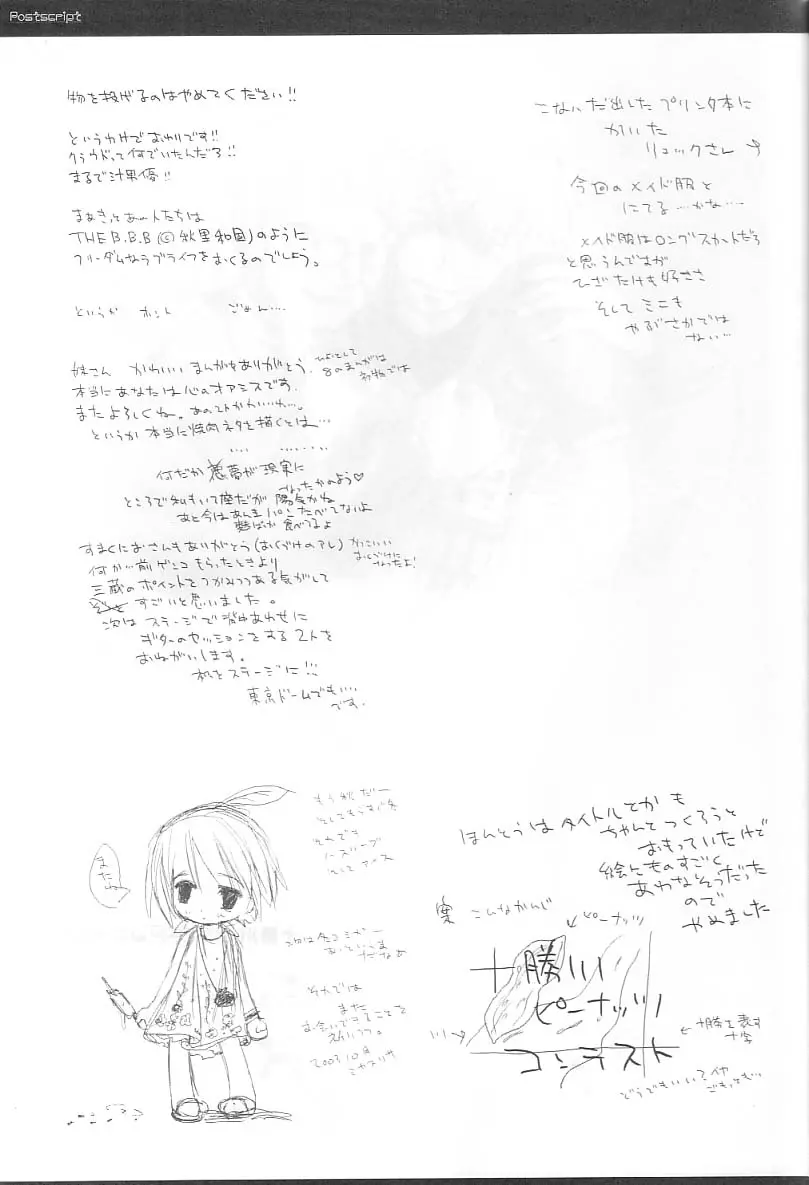 Postscript
物を投げるのはやめてください!!
というわけでおわりです!!
クラウドって何でいたんだろ!!
まるで汁果優!!
まぁきっとあの人たちは
THE B.B.B (©秋里和国)のように
フリーダムなラブライフをおくるのでしょう。
というか ホント ごめん…
妹さん かわいい まんがをありがとう。
本当にあなたは心のオアシスです。
またよろしくね。
というか本当に焼肉ネタを描くとは…
何だか悪夢が現実に
なったかのよう♡
陽気かね
あと今はあんまパンたべてないよ
食べてるよ
すまくにおさんもありがとう(おくづけのアレ)
かっこいい
おくづけに
なったよ!
何か…前ゲンコもらったときより
三蔵のポイントをつかみつつある気がして
すごいと思いました。
次はステージで背中あわせに
ギターのセッションをする2人を
おねがいします。
私をステージに!!!
東京ドームでも…
です。
こないだ出したプリンタ本に
かいた
リュックさん
今回のメイド服と
にてる…かな…
メイド服はロングスカートだろ
と思うんですが
ひざたけも好きさ
そしてミニも
やぶさかでは
ない…
またね
もう秋だー
それでも
ノースリーブ
次は冬コミかー
それでは
また
お会いできることを
祈りつつ。
2003 10月
ほんとうはタイトルとかも
ちゃんとつくろうと
おもっていたけど
絵とものすごく
あわなそうだった
ので
やめました
案 こんなかんじ
←ピーナッツ
十勝川
ピーナッツ
コンテスト
川→
←十勝を表す
十字
どうでもいい?